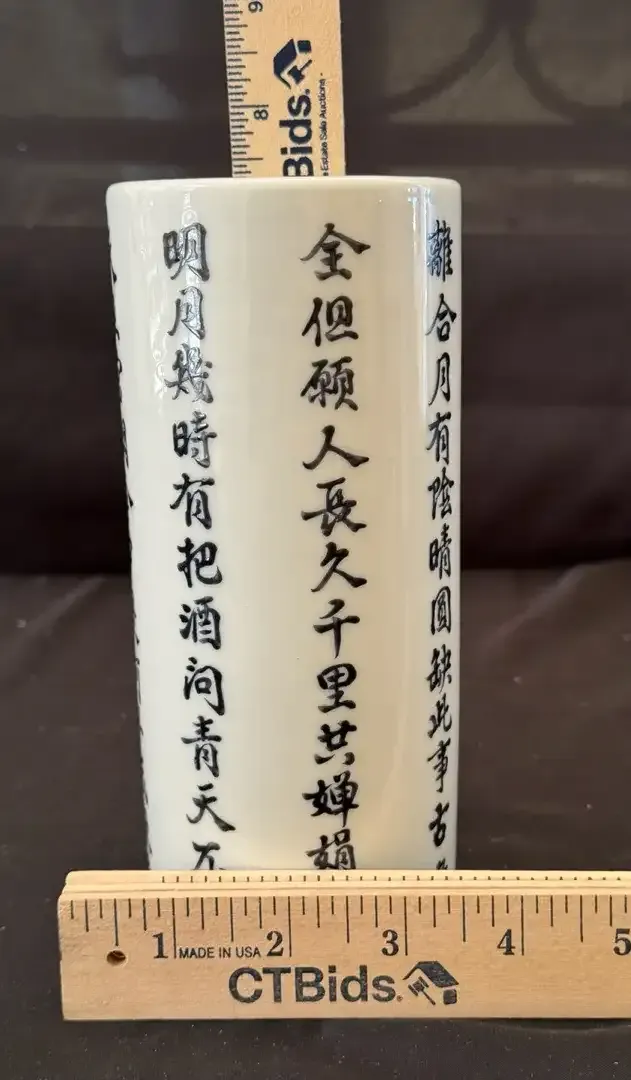 9
8
Bids.
Estate Sale Auctions
離合月有陰晴圓缺此事古
全但願人長久千里共嬋娟
明月幾時有把酒問青天不
1 MADE IN USA 2 3 4 5
CTBids.